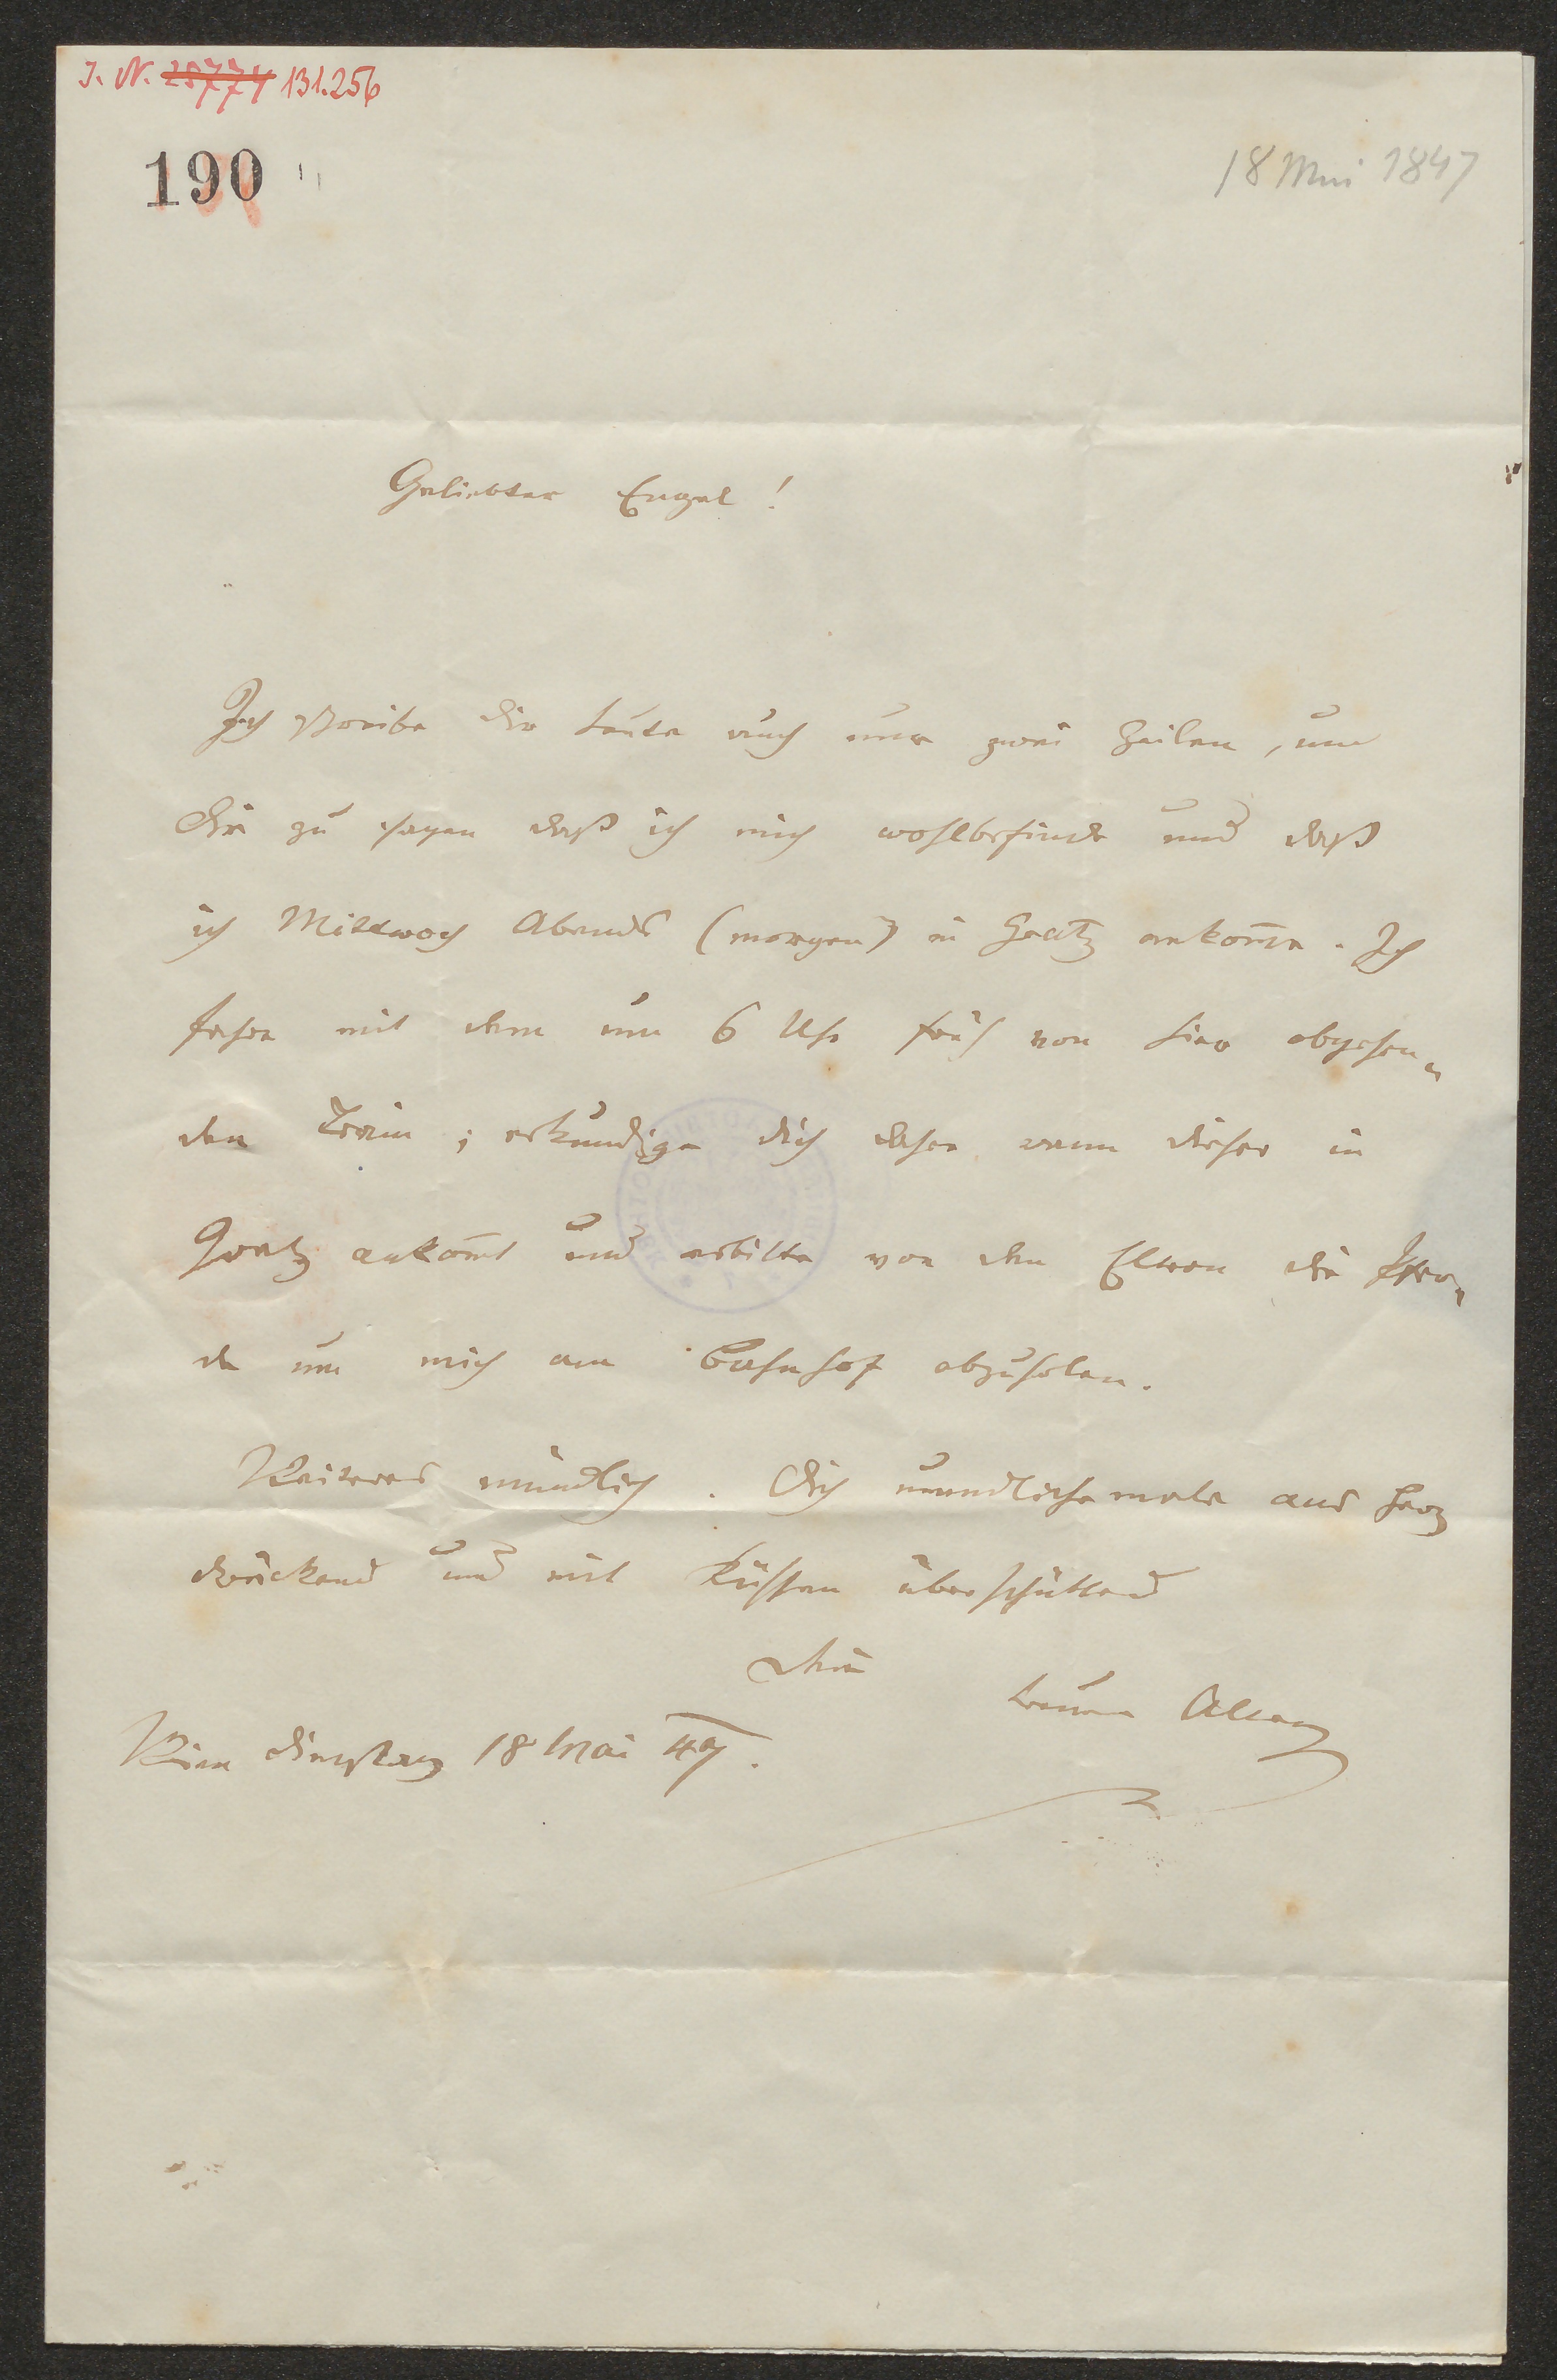 I. N. 28774 131.256
190
18 Mai 1847
Geliebter Engel!
Ich schreibe dir heute auch nur zwei Zeilen, um
dir zu sagen daß ich mich wohlbefinde und daß
ich Mittwoch Abends (morgen) in Gratz ankom̅e. Ich
fahre mit dem um 6 Uhr früh von hier abgehen„
den Train; erkundige dich daher wann dieser in
Gratz ankom̅t und erbitte von den Eltern die Pfer„
de um mich am Bahnhof abzuholen.
Weiteres mündlich. Dich unendlichemale ans Herz
drückend und mit Küssen überschüttend
dein
treuer Alex
Wien Dienstag 18 Mai 47.